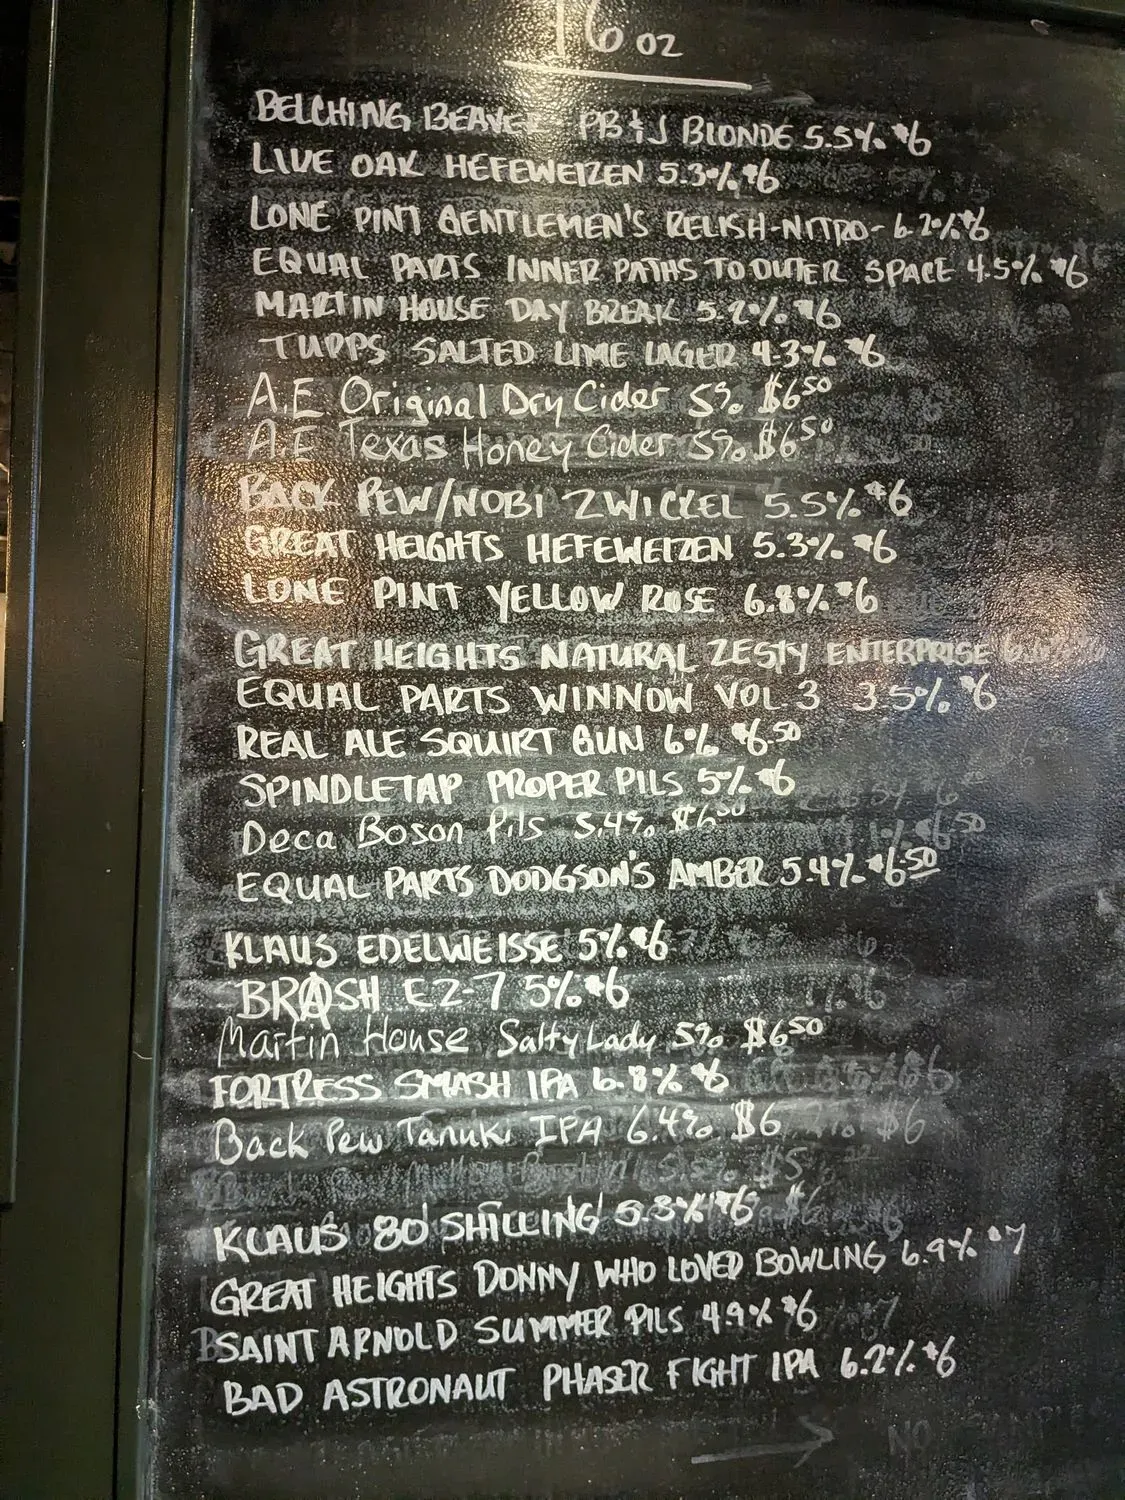 16 oz
BELCHING BEAVER PB & J BLONDE 5.5% $6
LIVE OAK HEFEWEIZEN 5.3% $6
LONE PINT GENTLEMEN'S RELISH-NITRO- 6.2% $6
EQUAL PARTS INNER PATHS TO OUTER SPACE 4.5% $6
MARTIN HOUSE DAY BREAK 5.2% $6
TUPPS SALTED LIME LAGER 4.3% $6
A.E Original Dry Cider 5% $6 50
A.E Texas Honey Cider 5% $6 50
BACK PEW/NOBI ZWICKEL 5.5% $6
GREAT HEIGHTS HEFEWEIZEN 5.3% $6
LONE PINT YELLOW ROSE 6.8% $6
GREAT HEIGHTS NATURAL ZESTY ENTERPRISE
EQUAL PARTS WINNOW VOL 3 3.5% $6
REAL ALE SQUIRT GUN 6% $6.50
SPINDLETAP PROPER PILS 5% $6
Deca Boson Pils 5.4% $6 50
EQUAL PARTS DODGSON'S AMBER 5.4% $6.50
KLAUS EDELWEISSE 5% $6
BRASH EZ-7 5% $6
Martin House Salty Lady 5% $6 50
FORTRESS SMASH IPA 6.8% $6
Back Pew Tanuki IPA 6.4% $6
KLAUS 80 SHILLING 5.3% $6
GREAT HEIGHTS DONNY WHO LOVED BOWLING 6.9% $7
SAINT ARNOLD SUMMER PILS 4.9% $6
BAD ASTRONAUT PHASER FIGHT IPA 6.2% $6
NO